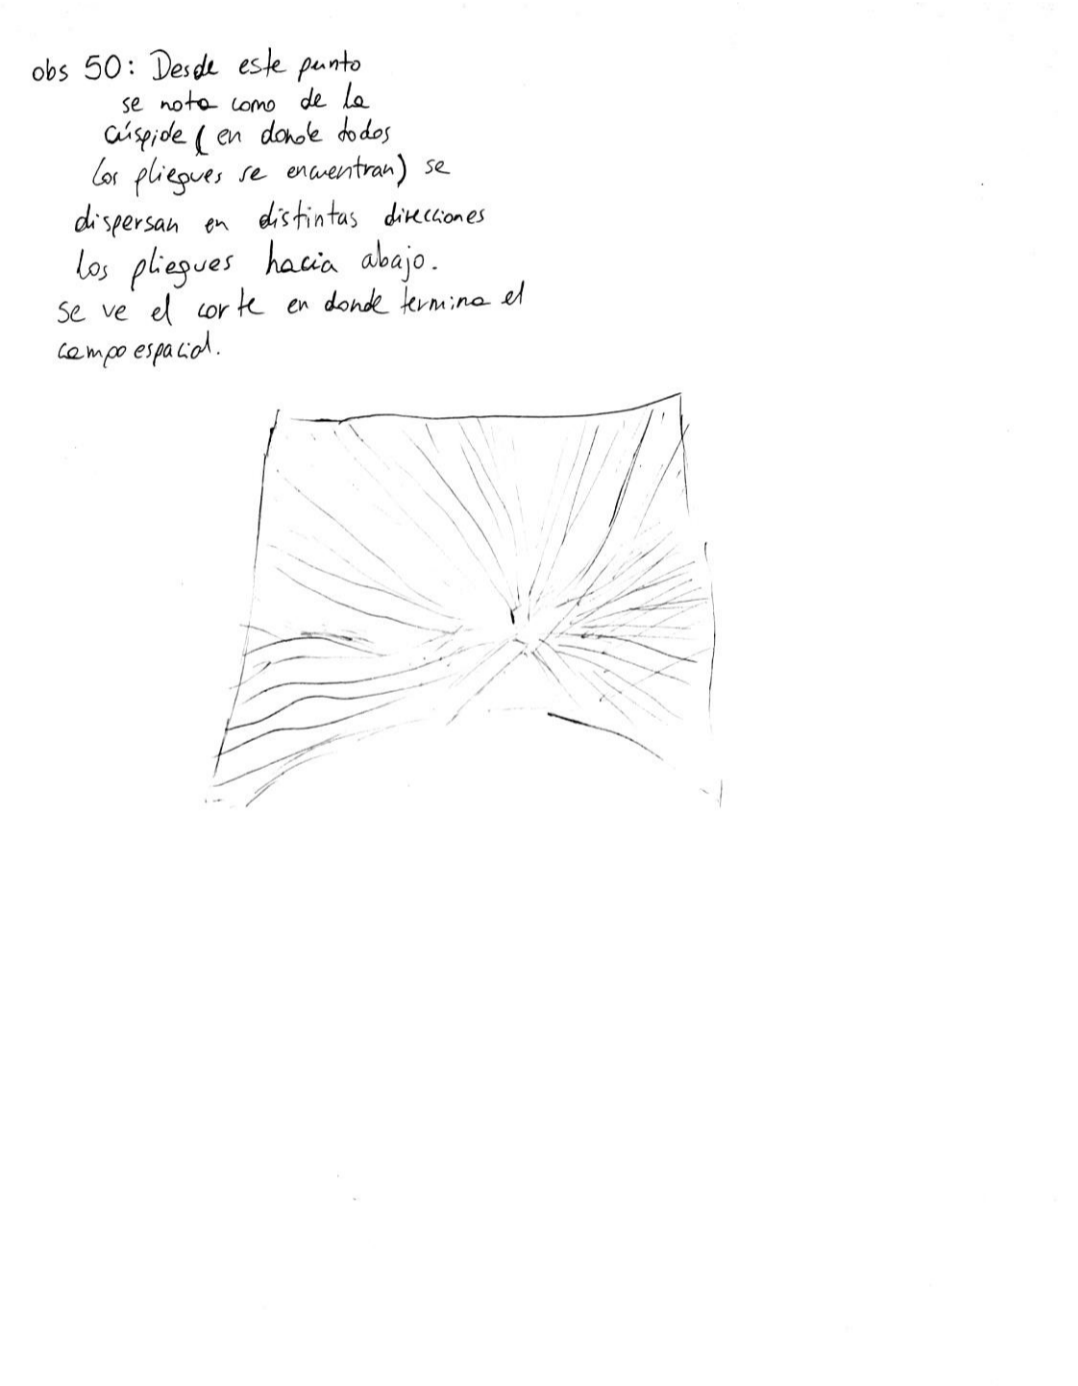 obs 50: Desde este punto
se nota como de la
cúspide (en donde todos
los pliegues se encuentran) se
dispersan en distintas direcciones
los pliegues hacia abajo.
se ve el corte en donde termina el
campo espacial.